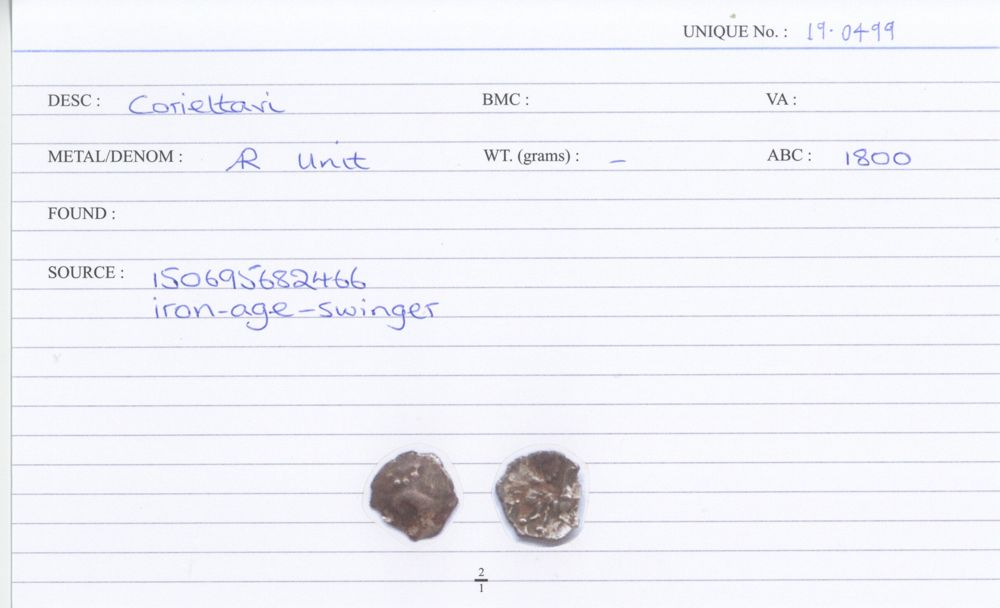 UNIQUE No. : 19.0499
DESC : Corieltavi BMC : VA :
METAL/DENOM : AR Unit WT. (grams) : – ABC : 1800
FOUND :
SOURCE : 150695682466
iron-age-swinger
2
1